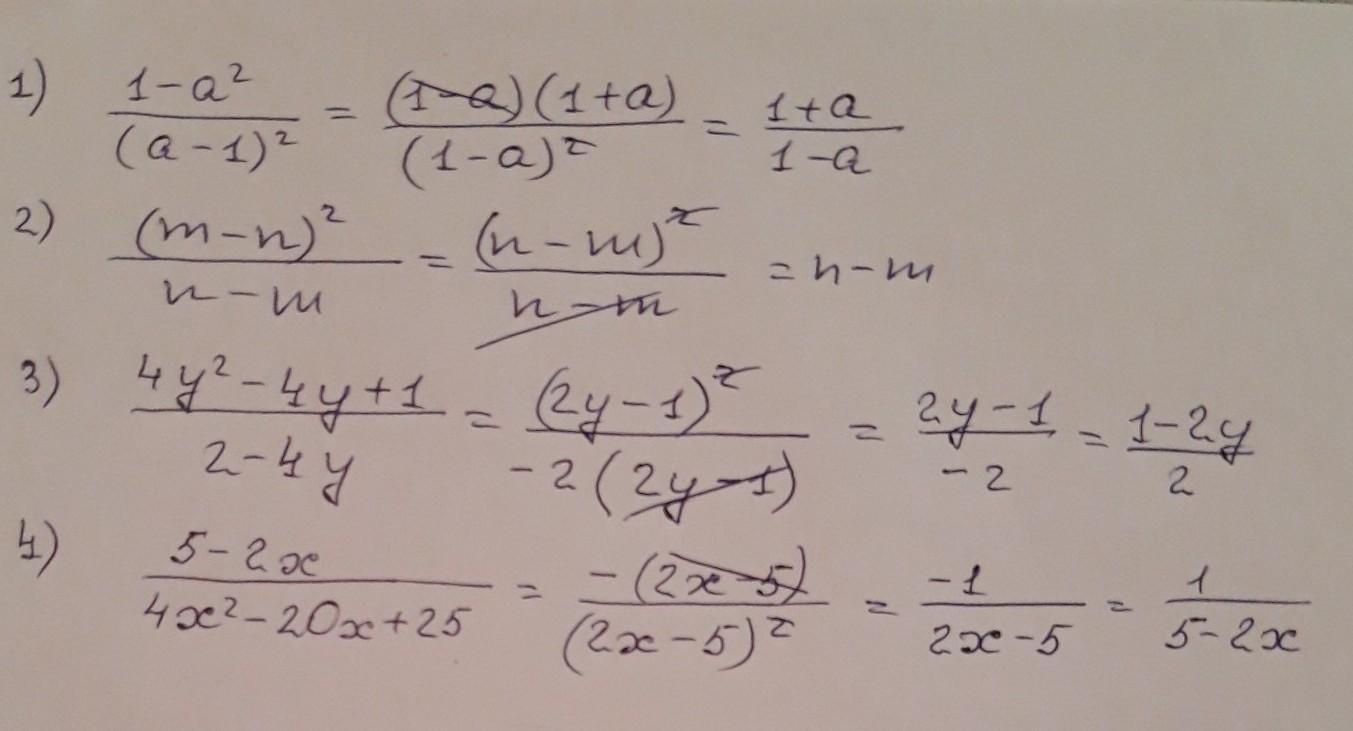 1) (1-a²)/(a-1)² = ((1-a)(1+a))/(1-a)² = (1+a)/(1-a)
2) (m-n)²/(n-m) = (n-m)²/(n-m) = n-m
3) (4y²-4y+1)/(2-4y) = (2y-1)²/(-2(2y-1)) = (2y-1)/(-2) = (1-2y)/2
4) (5-2x)/(4x²-20x+25) = (-(2x-5))/(2x-5)² = (-1)/(2x-5) = 1/(5-2x)